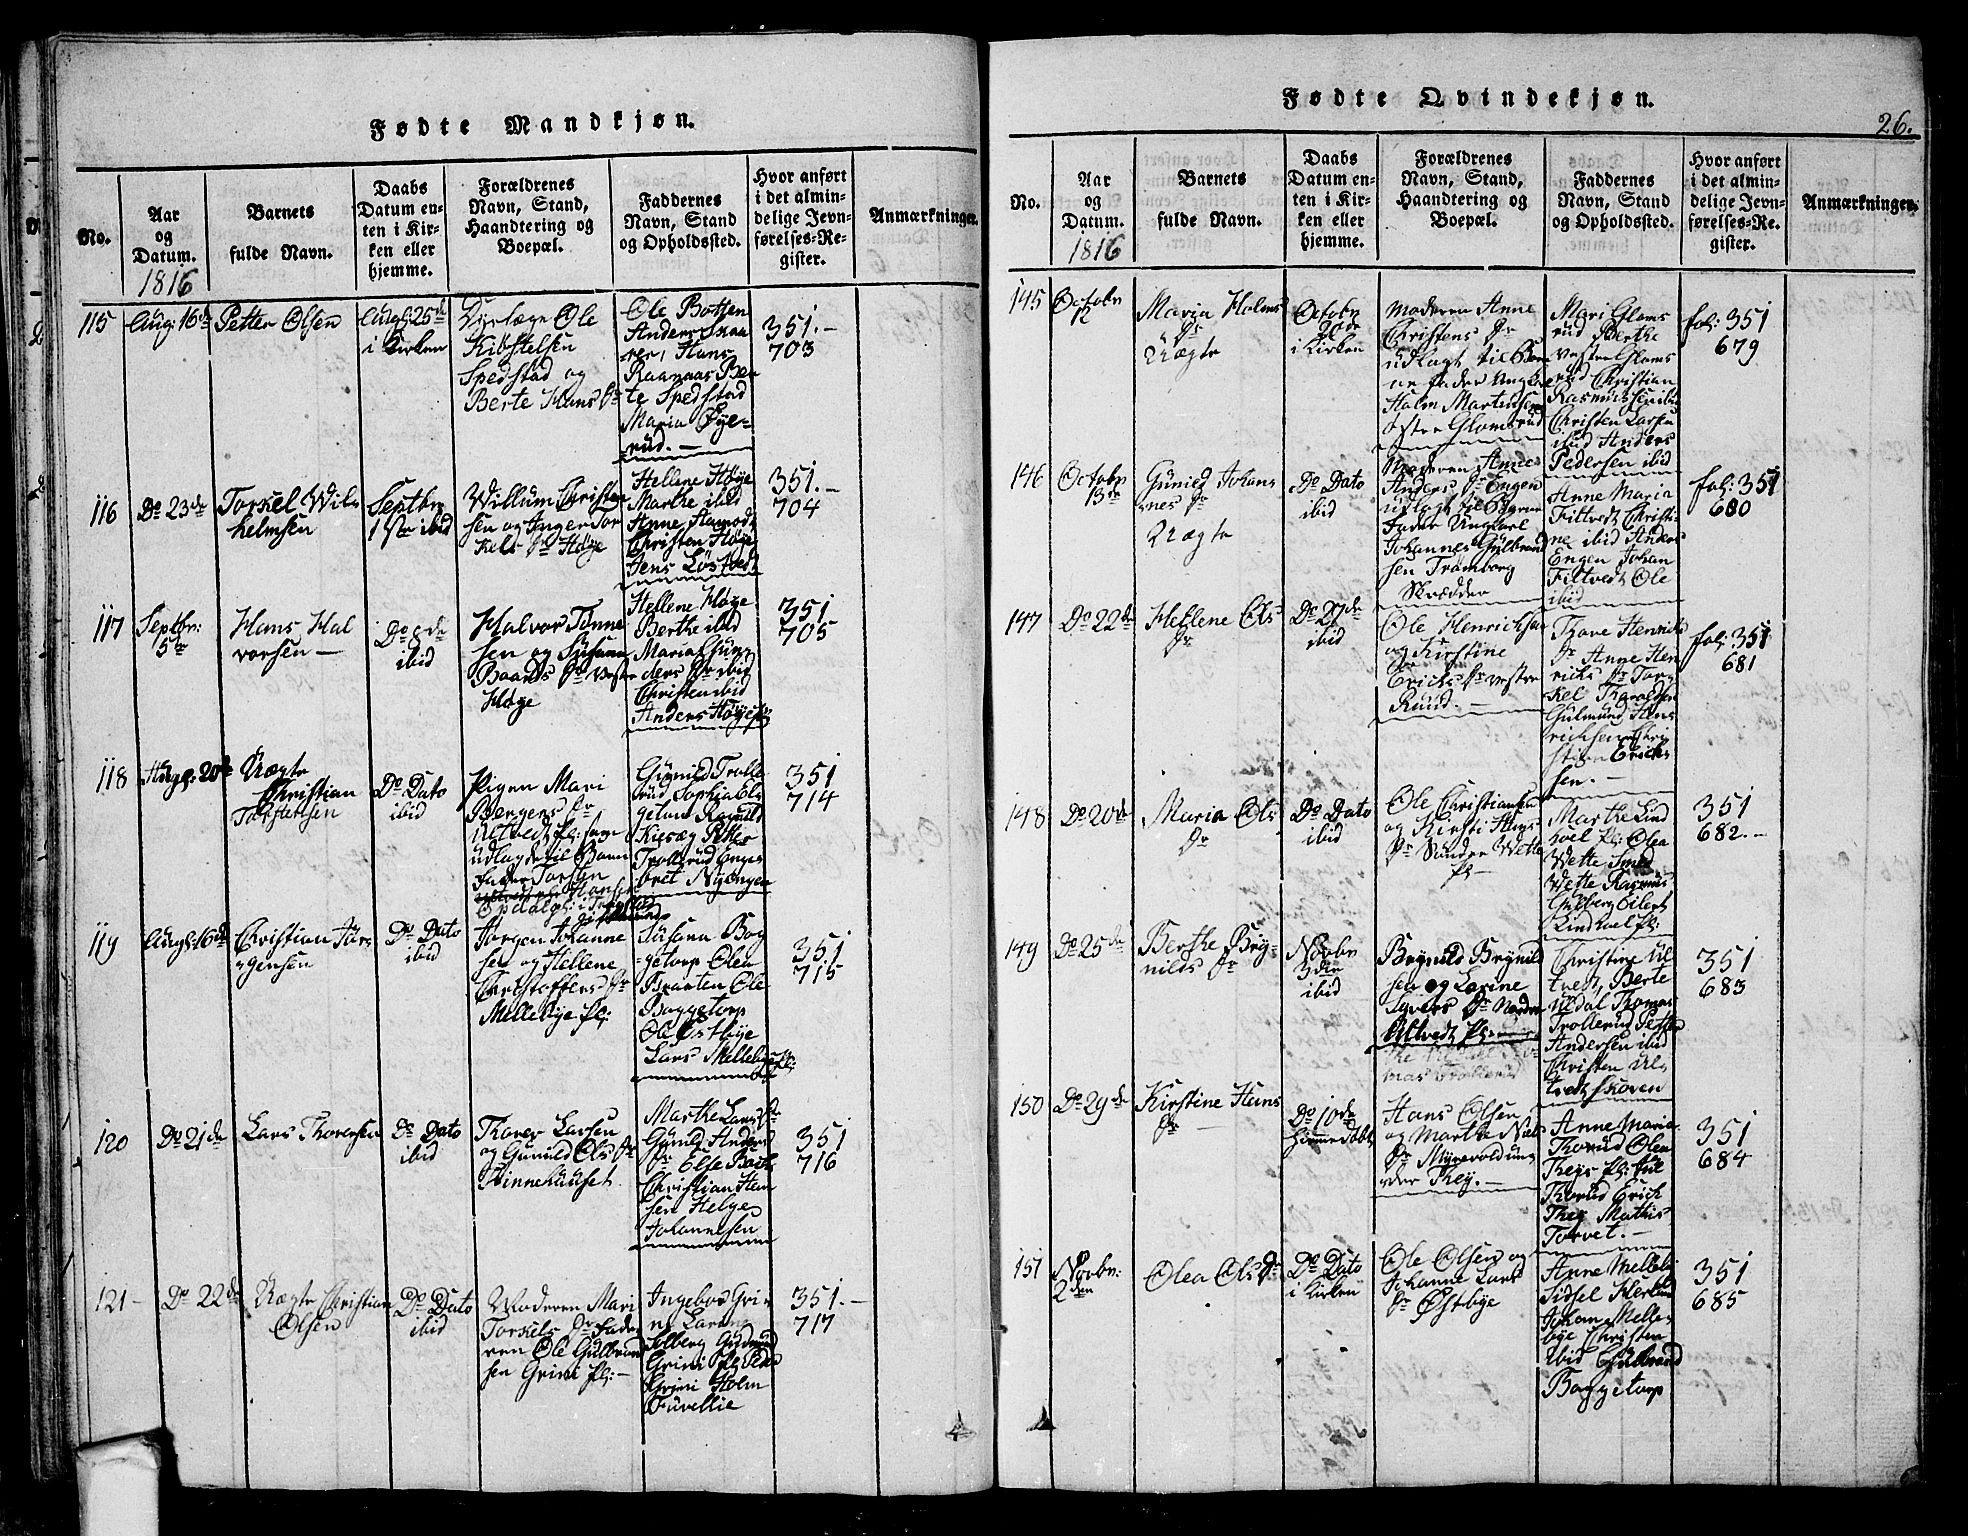 Fødte Mandkjøn.
No.
Aar
og
Datum.
1816
Barnets
fulde Navn.
Daabs
Datum en-
ten i Kir-
ken eller
hjemme.
Forældrenes
Navn, Stand,
Haandtering og
Boepæl.
Faddernes
Navn, Stand
og Opholdssted.
Hvor anført
i det almin-
delige Jevn-
førelses-Re-
gister.
Anmærkninger.
115
Aug: 16de
Petter Olsen
Aug: 25de
i Kirken
Ole
Spedstad og
Berte Hans Dr
Ole
Anders Skaa
rer, Hans
Raanaas Ben
te Spedstad
Maria Øye-
rud. —
351. —
703
116
Do 23de
Torkel Wil
helmsen
Septbr
1ste ibid
Willum Christen
sen og Inger Tor
kels Dr Høye
Hellene Høye
Marthe ibid
Anne
Christen Høye
Jens
351. —
704
117
Septbr:
5te
Hans Hal
vorsen —
Do 8de
ibid
Halvor Tønne
sen og Susann
Baards Dr Vestre
Høye
Hellene Høye
Berthe ibid
Maria
ders Dr ibid
Christen ibid
Anders Høye
351
705
118
Aug: 20de
Uægte
Christian
Torstensen
Do Dato
ibid
Pigen Mari
Bergers Dr
Ultvedt
udlagde til Barn
Fader Torsten
Hansen
Gunild Trolle
rud Sophia
Petter
Trollerud
bret
351
714
119
Aug: 16de
Christian Jør
gensen
Do Dato
ibid
Jørgen Johanne
sen og Hellene
Christoffers Dr
Mellebye
Susana Bag
getorp Olea
Braaten Ole
Baggetorp
Ole Østbye
Lars Mellebye
351
715
120
Do 21de
Lars Thoresen
Do Dato
ibid
Thorer Larsen
og Gunild Ols Dr
Marthe Lars Dr
Gunild Anders
Dr Else
Christian Hen
sen Helge
Johannesen
351
716
121 —
Do 22de
Uægte Christian
Olsen
Do Dato
ibid
Moderen Mari
Torkels Dr Fade
ren Ole Gulbrand
sen Grini
Ingebor Gri
ni
Solberg
Grini
Grini Holm
351. —
717
Fødte Qvindekjøn.
26.
No.
Aar
og
Datum.
1816
Barnets
fulde Navn.
Daabs
Datum en-
ten i Kir-
ken eller
hjemme.
Forældrenes
Navn, Stand,
Haandtering og
Boepæl.
Faddernes
Navn, Stand
og Opholdssted.
Hvor anført
i det almin-
delige Jevn-
førelses-Re-
gister.
Anmærkninger.
145
Octobr
12
Maria Holms
Dr
Uægte
Octobr
20de
i Kirken
Moderen Anne
Christens Dr
udlagt til Bar
ne fader
Holm Martinsen
østre Glomsrud
Mari Gloms
rud Berthe
vestre Gloms
rud Christian
Rasmussen ibid
Christen Larsen
ibid Anders
Pedersen ibid
fol: 351
679
146
Octobr
13de
Gunild Johan
nes Dr
Uægte
Do Dato
ibid
Moderen Anne
Anders Dr Engen
udlagt til Barne
Fader Ungkarl
Johannes Gulbrand
sen Trømborg
Skrædder
Anne Maria
Filtvedt Christi
ne ibid Anders
Engen Johan
Filtvedt Ole
ibid
fol: 351
680
147
Do 22de
Hellene Ols
Dr
Do 27de
ibid
Ole Henricksen
og Kirstine
Ericks Dr vestre
Ruud. —
Thore Henricks
Dr Anne Hen
ricks Dr Tor
kel Tharaldsen
Gulmund Hen
richsen Chri
stian Erick
sen. —
fol: 351
681
148
Do 20de
Maria Ols
Dr
Do Dato
ibid
Ole Christiansen
og Kirsti Hans
Dr Sundre Wette
Marthe Lind
hoel Olea
Wette
Wette Rasmus
Gulberg Eilert
Lindhoel
351
682. —
149
Do 25de
Berthe Bry-
nilds Dr
Novbr
3die
ibid
Brynild Brynild
sen og Karine
Sivers Dr Nordre
Ultvedt
Christine Ul
tvedt, Berte
Uldal Thomas
Trollerud Petter
Andersen ibid
Christen Ul-
tvedt skoven
351
683
150
Do 29de
Kirstine Hans
Dr
Do 10de
Hans Olsen
og Marthe Niels
Dr Myrevold un
der Theÿ. —
Anne Maria
Thorud Olea
Theÿs
Thorud Erick
Theÿ Mathis
Torvet. —
351
684
151
Novbr:
2den
Olea Ols Dr
Do Dato
i Kirken
Ole Olsen og
Johanne Lars
Dr Østbye
Anne Melleby
Sidsel
Johan Melle-
bye Christen
ibid Gulbrand
Baggetorp
351
685